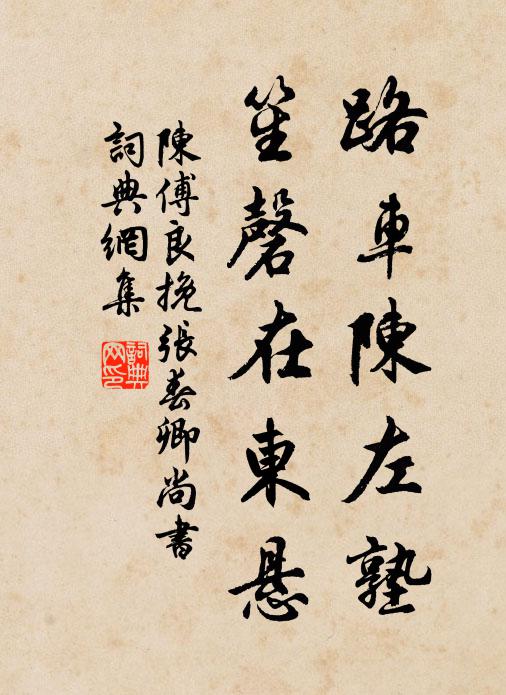 路車陳左塾
笙磬在東悬
陳傅良挽張春卿尚書
詞典網集
詞典网印